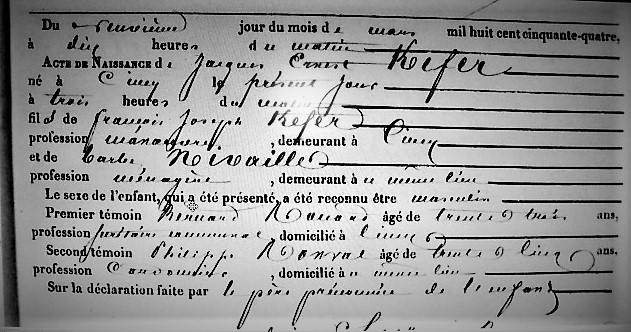 Du neuvième jour du mois de mars mil huit cent cinquante-quatre,
à dix heures du matin
ACTE DE NAISSANCE de Jacques Ernest Kefer
né à Cirey le présent jour
à trois heures du matin
fils de françois Joseph Kefer
profession , demeurant à Cirey
et de Barbe Nivaille
profession ménagère , demeurant à u même lieu
Le sexe de l'enfant, qui a été présenté, a été reconnu être masculin
Premier témoin Bernard âgé de trente trois ans,
profession communal , domicilié à Cirey
Second témoin Philippe âgé de trente cinq ans,
profession Cordonnier , domicilié à u même lieu
Sur la déclaration faite par le père prénommé de l'enfant